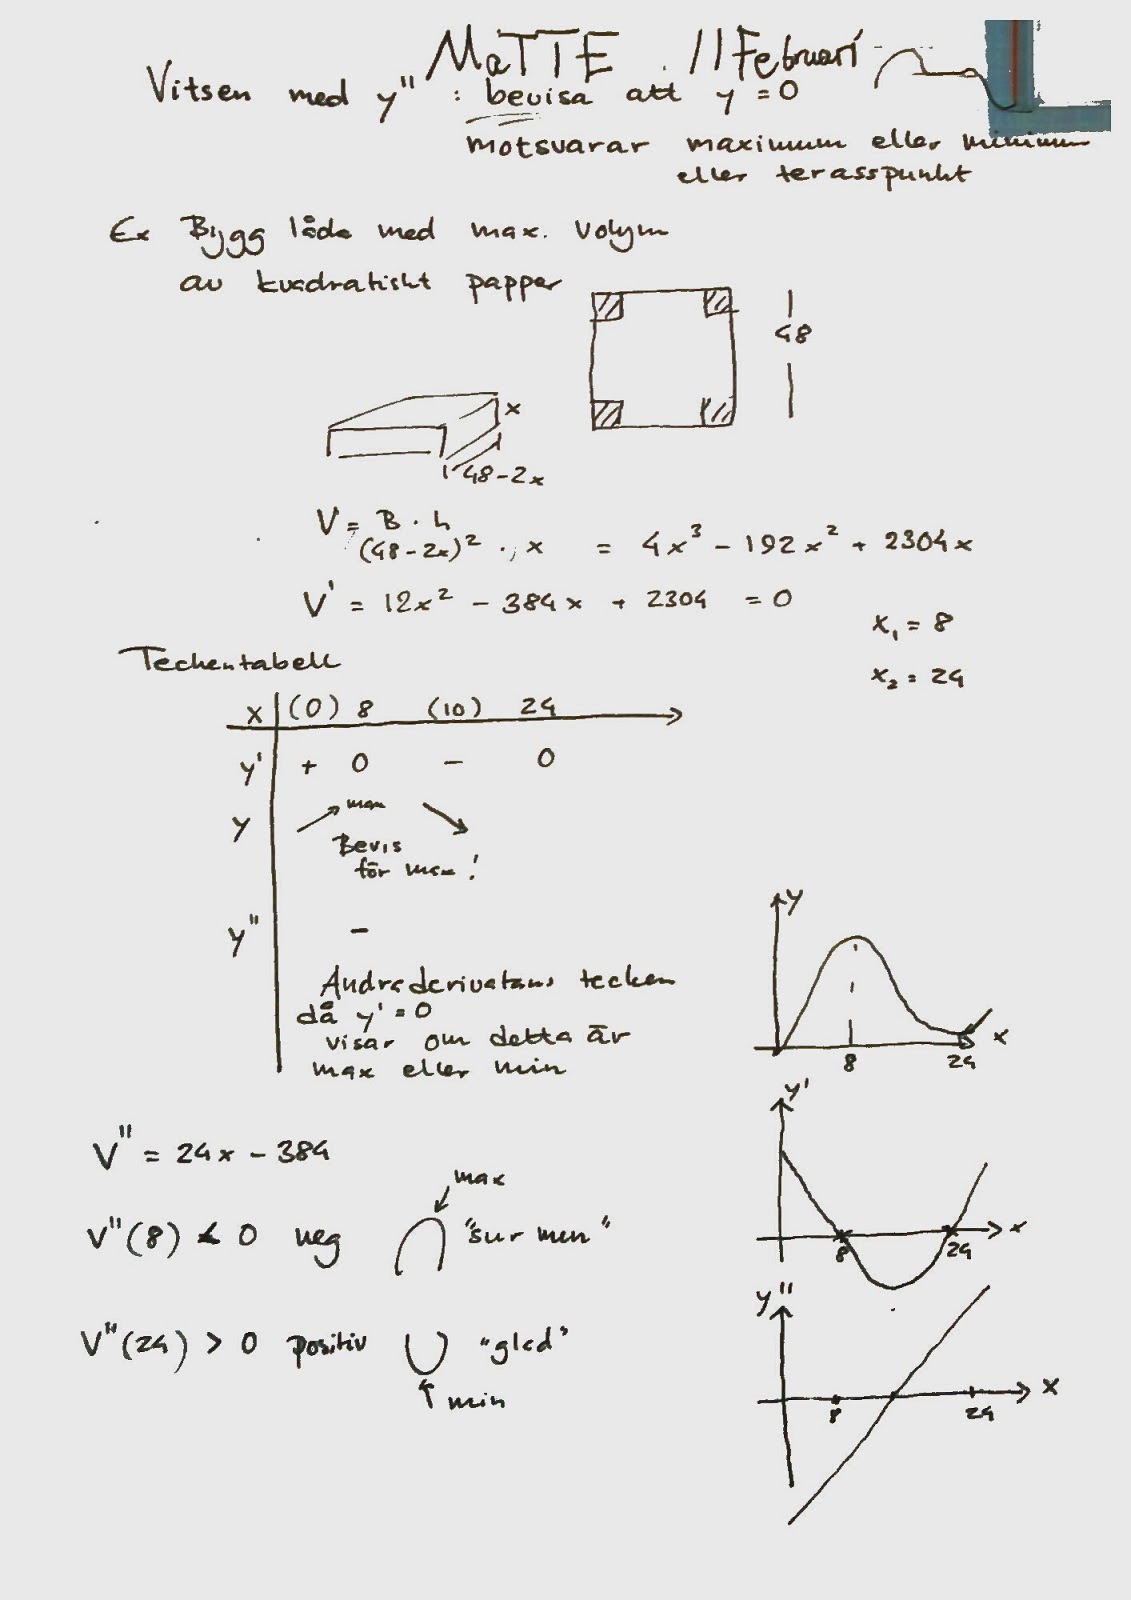 MaTTE 11 Februari
Vitsen med y" : bevisa att y = 0
motsvarar maximum eller minimum
eller terasspunkt
Ex Bygg låda med max. volym
av kvadratiskt papper
48
x
48-2x
V = B · h
(48-2x)² · x = 4x³ - 192x² + 2304x
V' = 12x² - 384x + 2304 = 0
x₁ = 8
x₂ = 24
Teckentabell
x (0) 8 (10) 24
y' + 0 - 0
y max
Bevis
för max!
y" -
Andraderivatans tecken
då y' = 0
visar om detta är
max eller min
y
x
8
24
V" = 24x - 384
max
V"(8) < 0 neg "sur mun"
V"(24) > 0 positiv "glad"
min
y'
x
8
24
y"
x
8
24